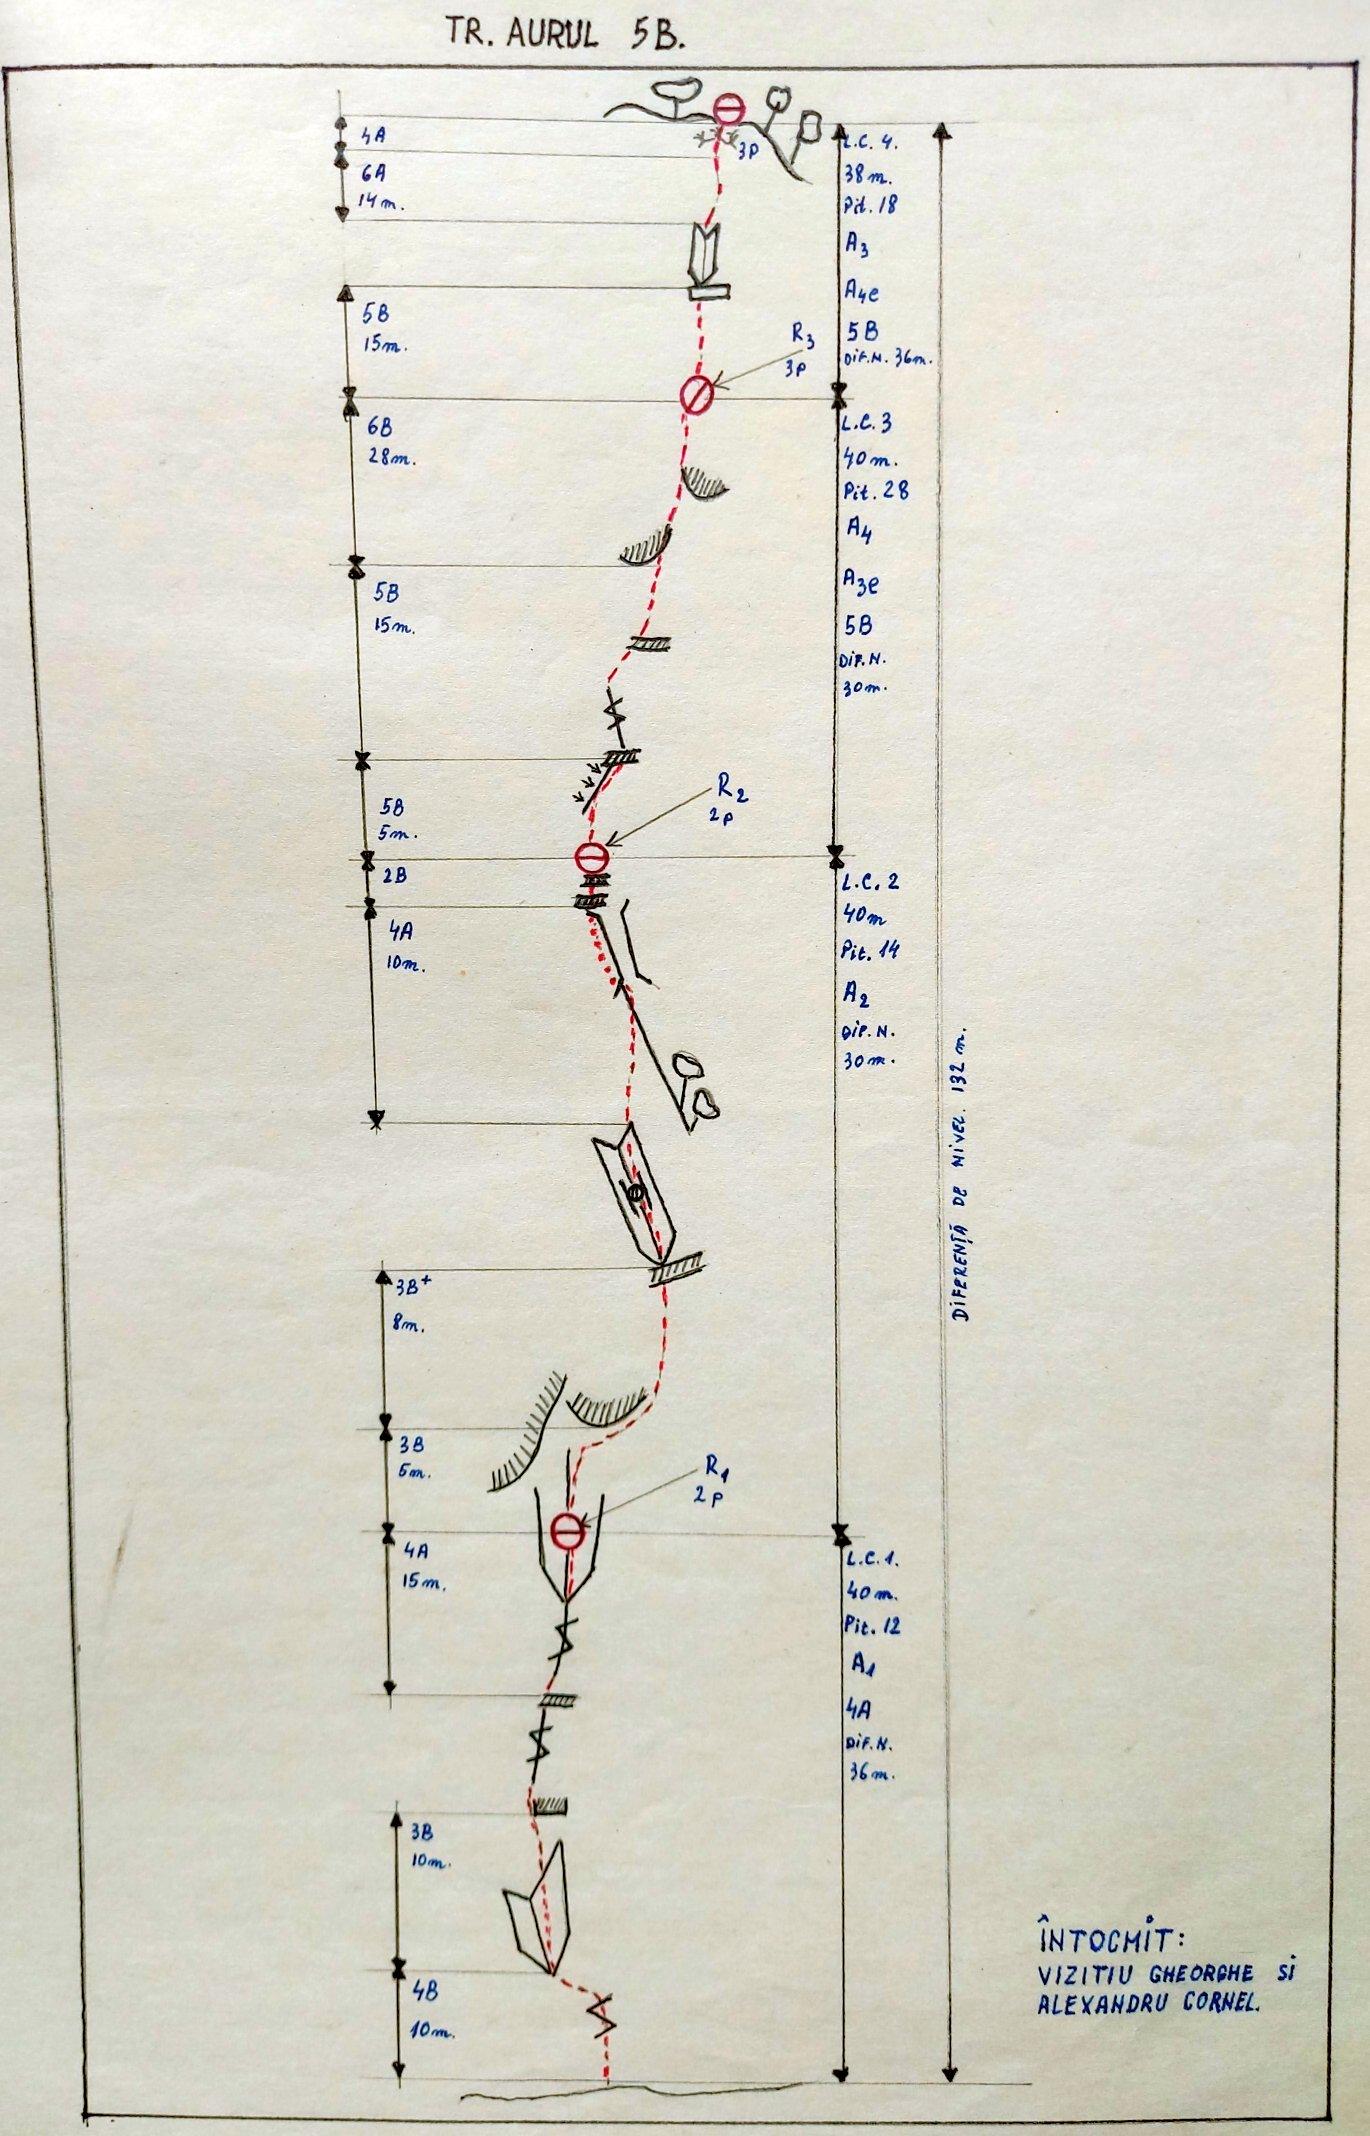 TR. AURUL 5B.
4A
6A
14m.
3P
L.C. 4.
38m.
Pit. 18
A3
A4e
5B
DiF.N. 36m.
5B
15m.
R3
3P
6B
28m.
L.C. 3
40m.
Pit. 28
A4
A3e
5B
DiF.N.
30m.
5B
15m.
5B
5m.
R2
2P
2B
4A
10m.
L.C. 2
40m
Pit. 14
A2
DiF.N.
30m.
DIFERENȚĂ DE NIVEL 132m.
3B+
8m.
3B
5m.
R1
2P
4A
15m.
L.C.1.
40m.
Pit. 12
A1
4A
DiF.N.
36m.
3B
10m.
4B
10m.
ÎNTOCMIT:
VIZITIU GHEORGHE SI
ALEXANDRU CORNEL.